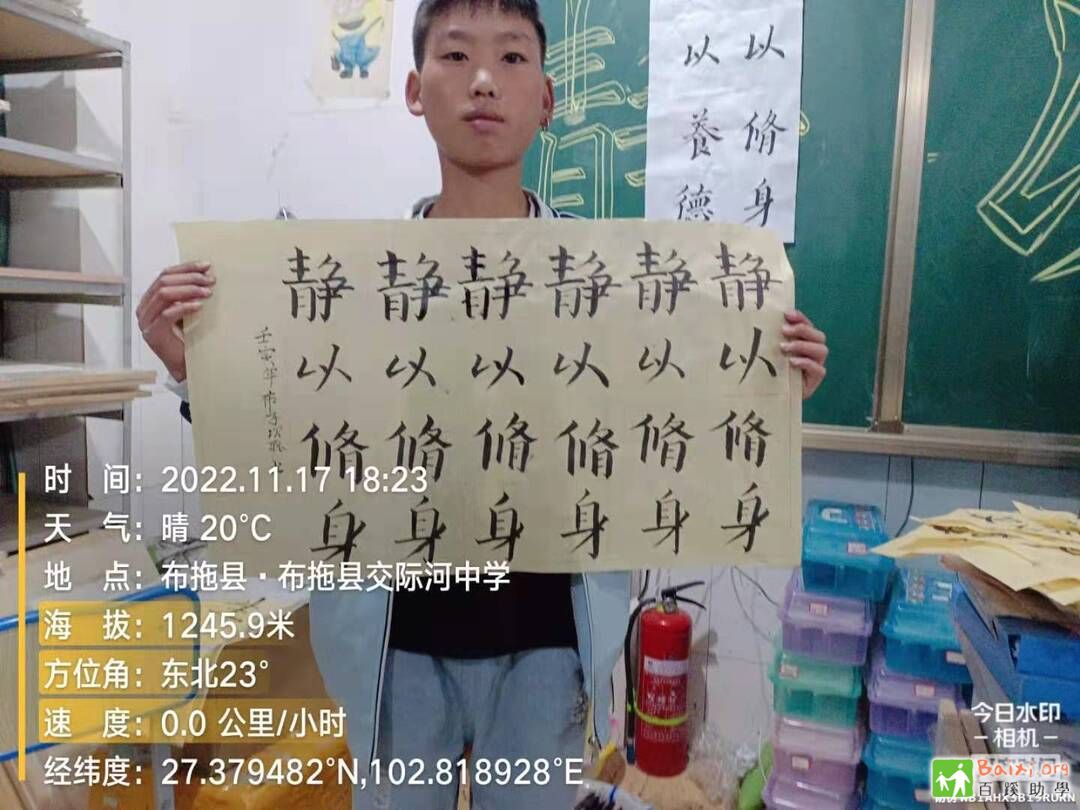 以 以
養 脩
德 身
静 静 静 静 静 静
以 以 以 以 以 以
脩 脩 脩 脩 脩 脩
身 身 身 身 身 身
壬寅年
时 间：2022.11.17 18:23
天 气：晴 20℃
地 点：布拖县·布拖县交际河中学
海 拔：1245.9米
方位角：东北23°
速 度：0.0 公里/小时
经纬度：27.379482°N,102.818928°E
今日水印
-相机-
Baixi.org
百蹊助學